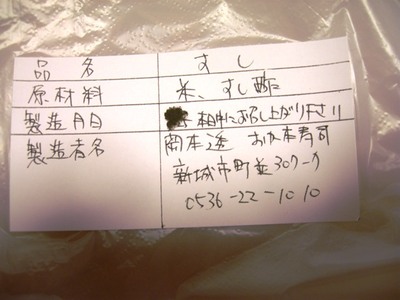 品名 すし
原材料 米、すし酢
製造月日 お召し上がり下さい
製造者名 岡本 おか本寿司
新城市町並
0536-22-1010